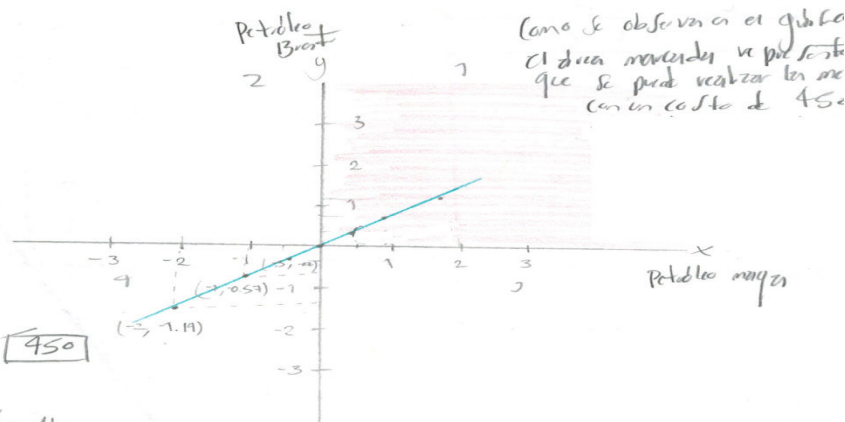 Petróleo
Brent
y
Como se observa en el gráfico
el área marcada representa
que se puede realizar la
con un costo de 450
2
1
3
2
1
-3
-2
-1
1
2
3
x
Petróleo maya
4
3
(-1, -0.57)
-1
(-2, -1.19)
-2
-3
450